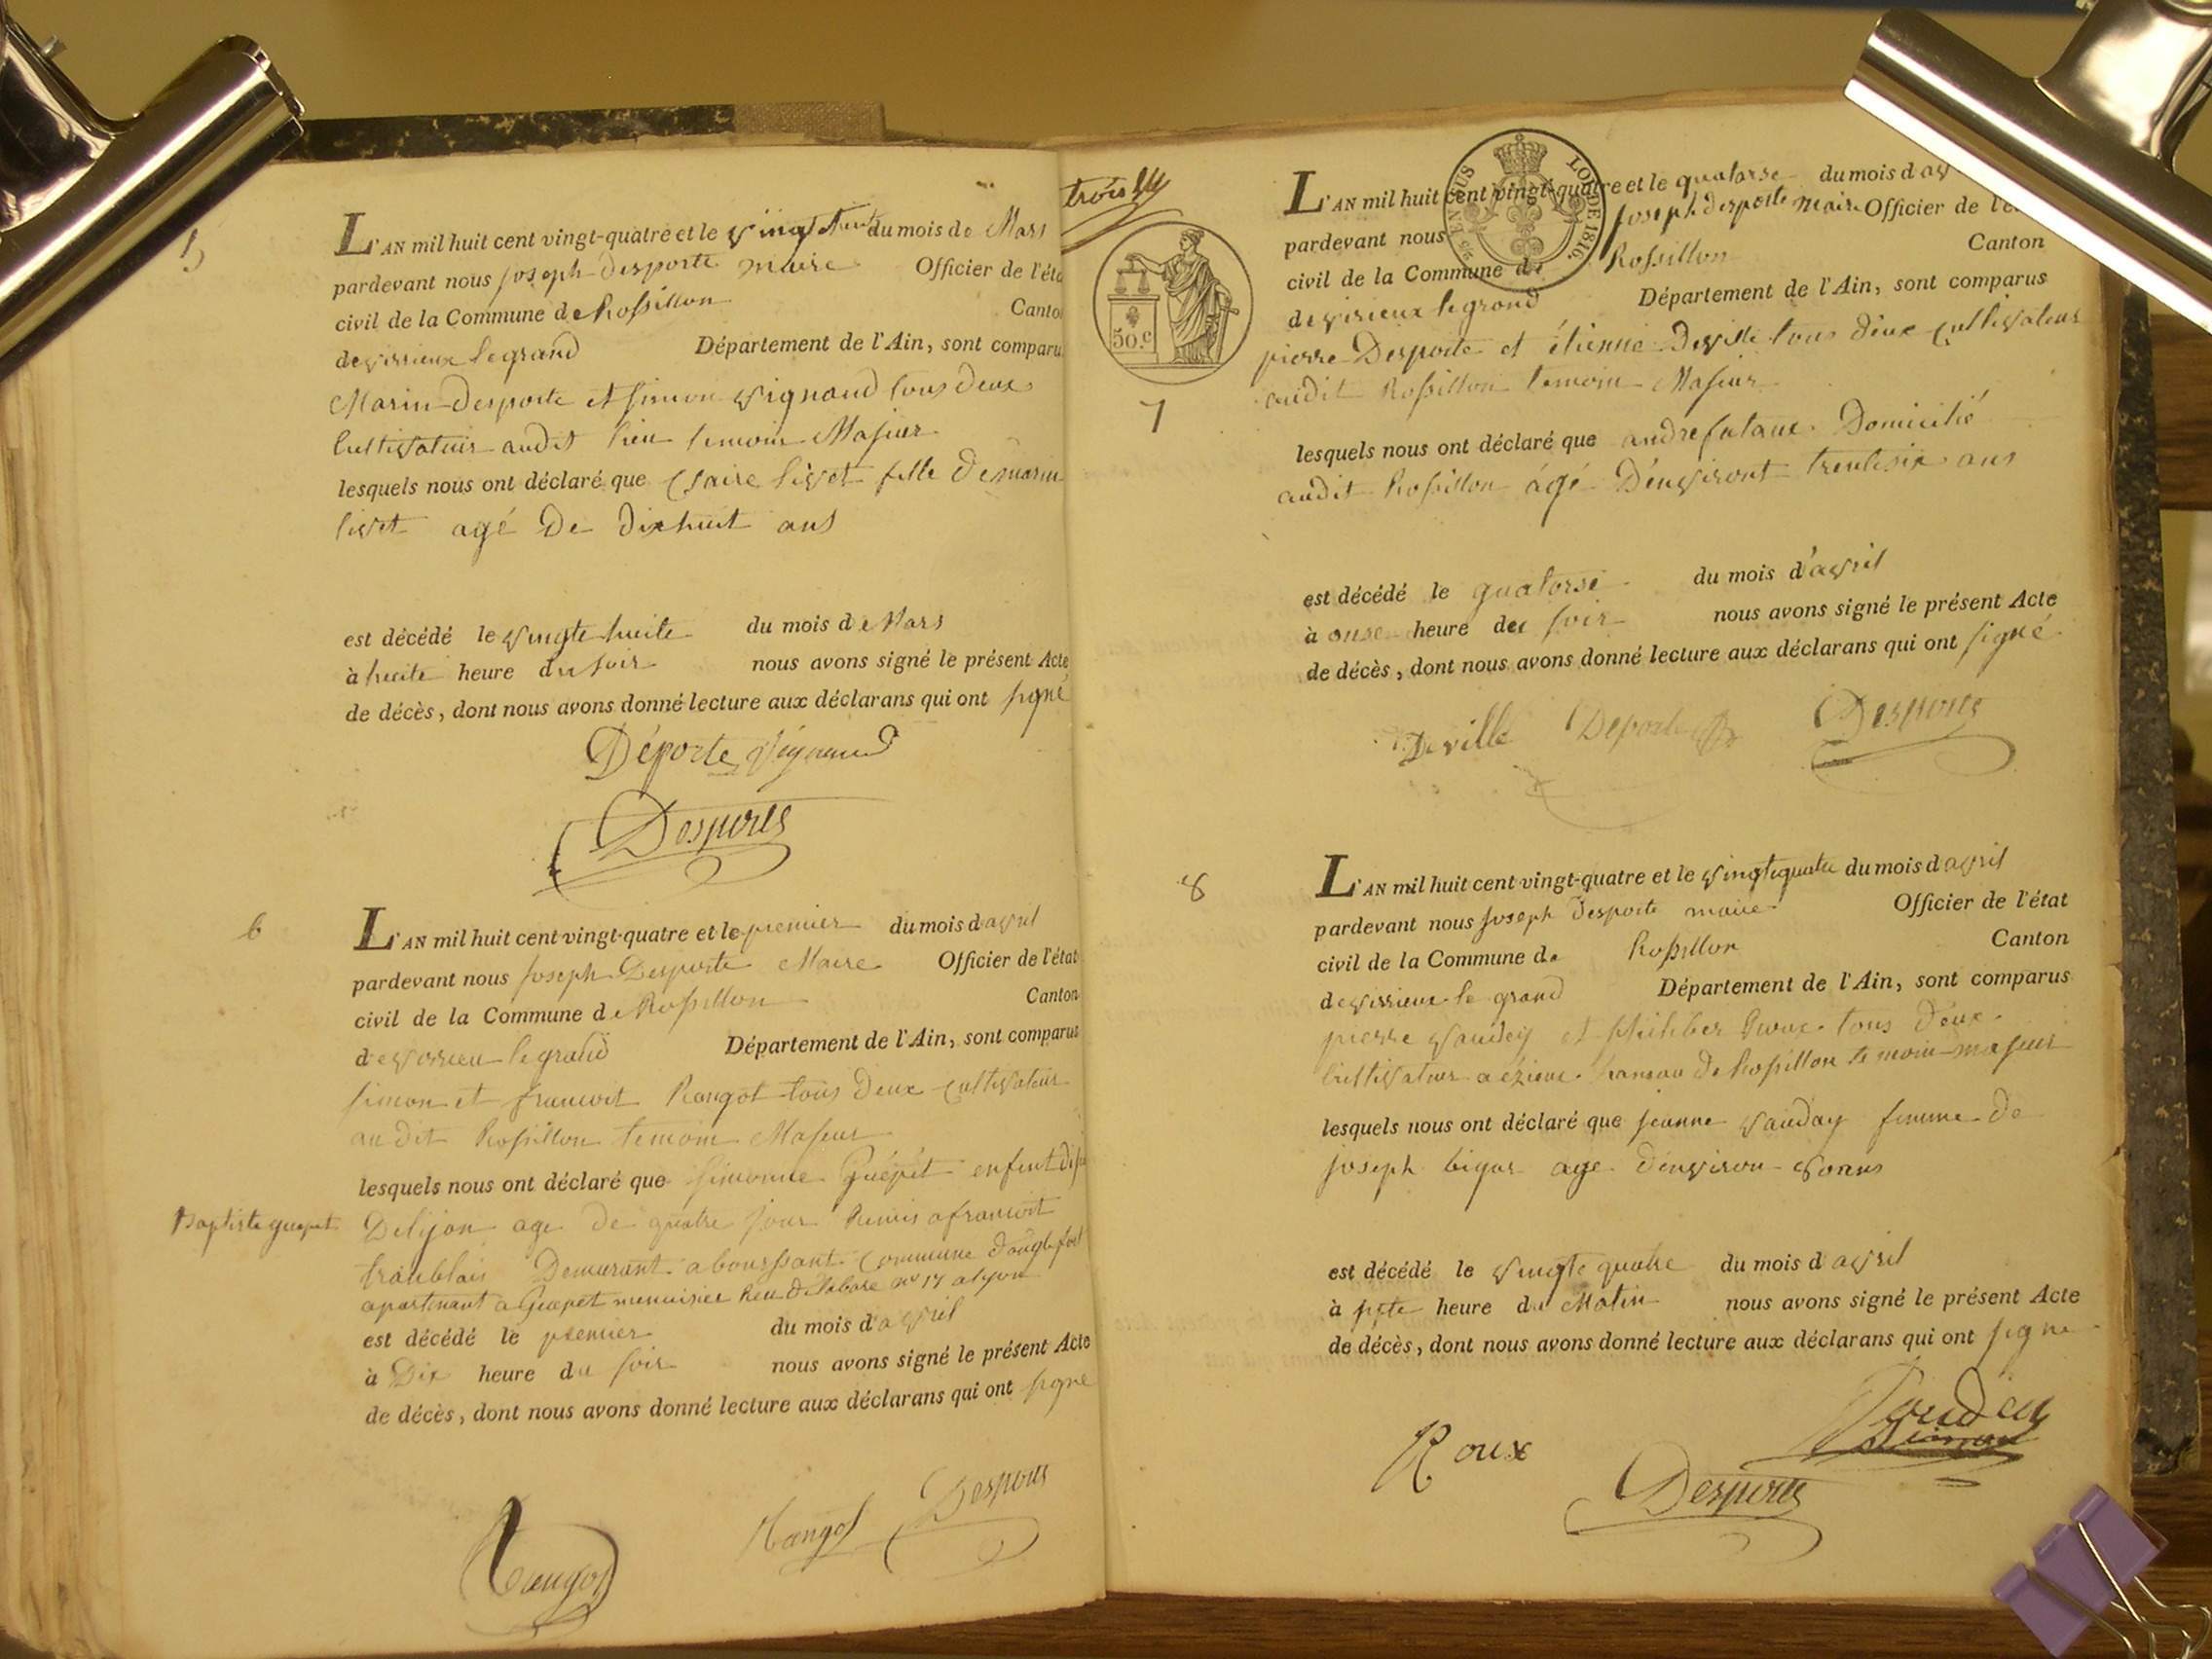 5
L'AN mil huit cent vingt-quatre et le vingt neuf du mois de Mars
pardevant nous joseph desporte maire Officier de l'éta
civil de la Commune de Rossillon Canto
de virieux le grand Département de l'Ain, sont comparu
Marin Desporte et simon vignaud tous deux
Cultivateur audit lieu temoin Majeur
lesquels nous ont déclaré que Claire livet fille de marin
livet agé De dixhuit ans
est décédé le vingte huite du mois de Mars
à huite heure du soir nous avons signé le présent Acte
de décès, dont nous avons donné lecture aux déclarans qui ont signé
Déporte Vignaud
Desportes
6
L'AN mil huit cent vingt-quatre et le premier du mois d'avril
pardevant nous joseph Desporte Maire Officier de l'état
civil de la Commune de Rossillon Canton
de le grand Département de l'Ain, sont comparus
simon et francoit Rangot tous Deux cultivateur
au dit Rossillon temoin Majeur
lesquels nous ont déclaré que simonne Guépét enfent
Baptiste guepet
Delijon age de quatre jour Remis a francoit
Demurant a commune
apartenant a Guepet menuisier n° 17 a lyon
est décédé le premier du mois d'avril
à Dix heure du soir nous avons signé le présent Acte
de décès, dont nous avons donné lecture aux déclarans qui ont signe
Rangot Rangot Desportes
trois
50.c
EN SUS LOI DE 1816
7
L'AN mil huit cent vingt-quatre et le quatorse du mois d'av
pardevant nous joseph desporte maire Officier de l'é
civil de la Commune de Rossillon Canton
de virieux le grand Département de l'Ain, sont comparus
pierre Desporte et étienne deville tous deux cultivateur
audit Rossillon temoin Majeur
lesquels nous ont déclaré que andre Domicilié
audit Rossillon ágé D'environt trentesix ans
est décédé le quatorse du mois d'avril
à onse heure du soir nous avons signé le présent Acte
de décès, dont nous avons donné lecture aux déclarans qui ont signé
Deville Deporte Desportes
8
L'AN mil huit cent vingt-quatre et le vingtequatre du mois d'avril
pardevant nous joseph desporte maire Officier de l'état
civil de la Commune de Rossillon Canton
de virieux le grand Département de l'Ain, sont comparus
pierre vauday et philiber Roux tous deux
Cultivateur a hameau de Rossillon temoin majeur
lesquels nous ont déclaré que jeanne vauday femme de
joseph age d'environ
est décédé le vingte quatre du mois d'avril
à sete heure du Matin nous avons signé le présent Acte
de décès, dont nous avons donné lecture aux déclarans qui ont signe
Roux
Desportes